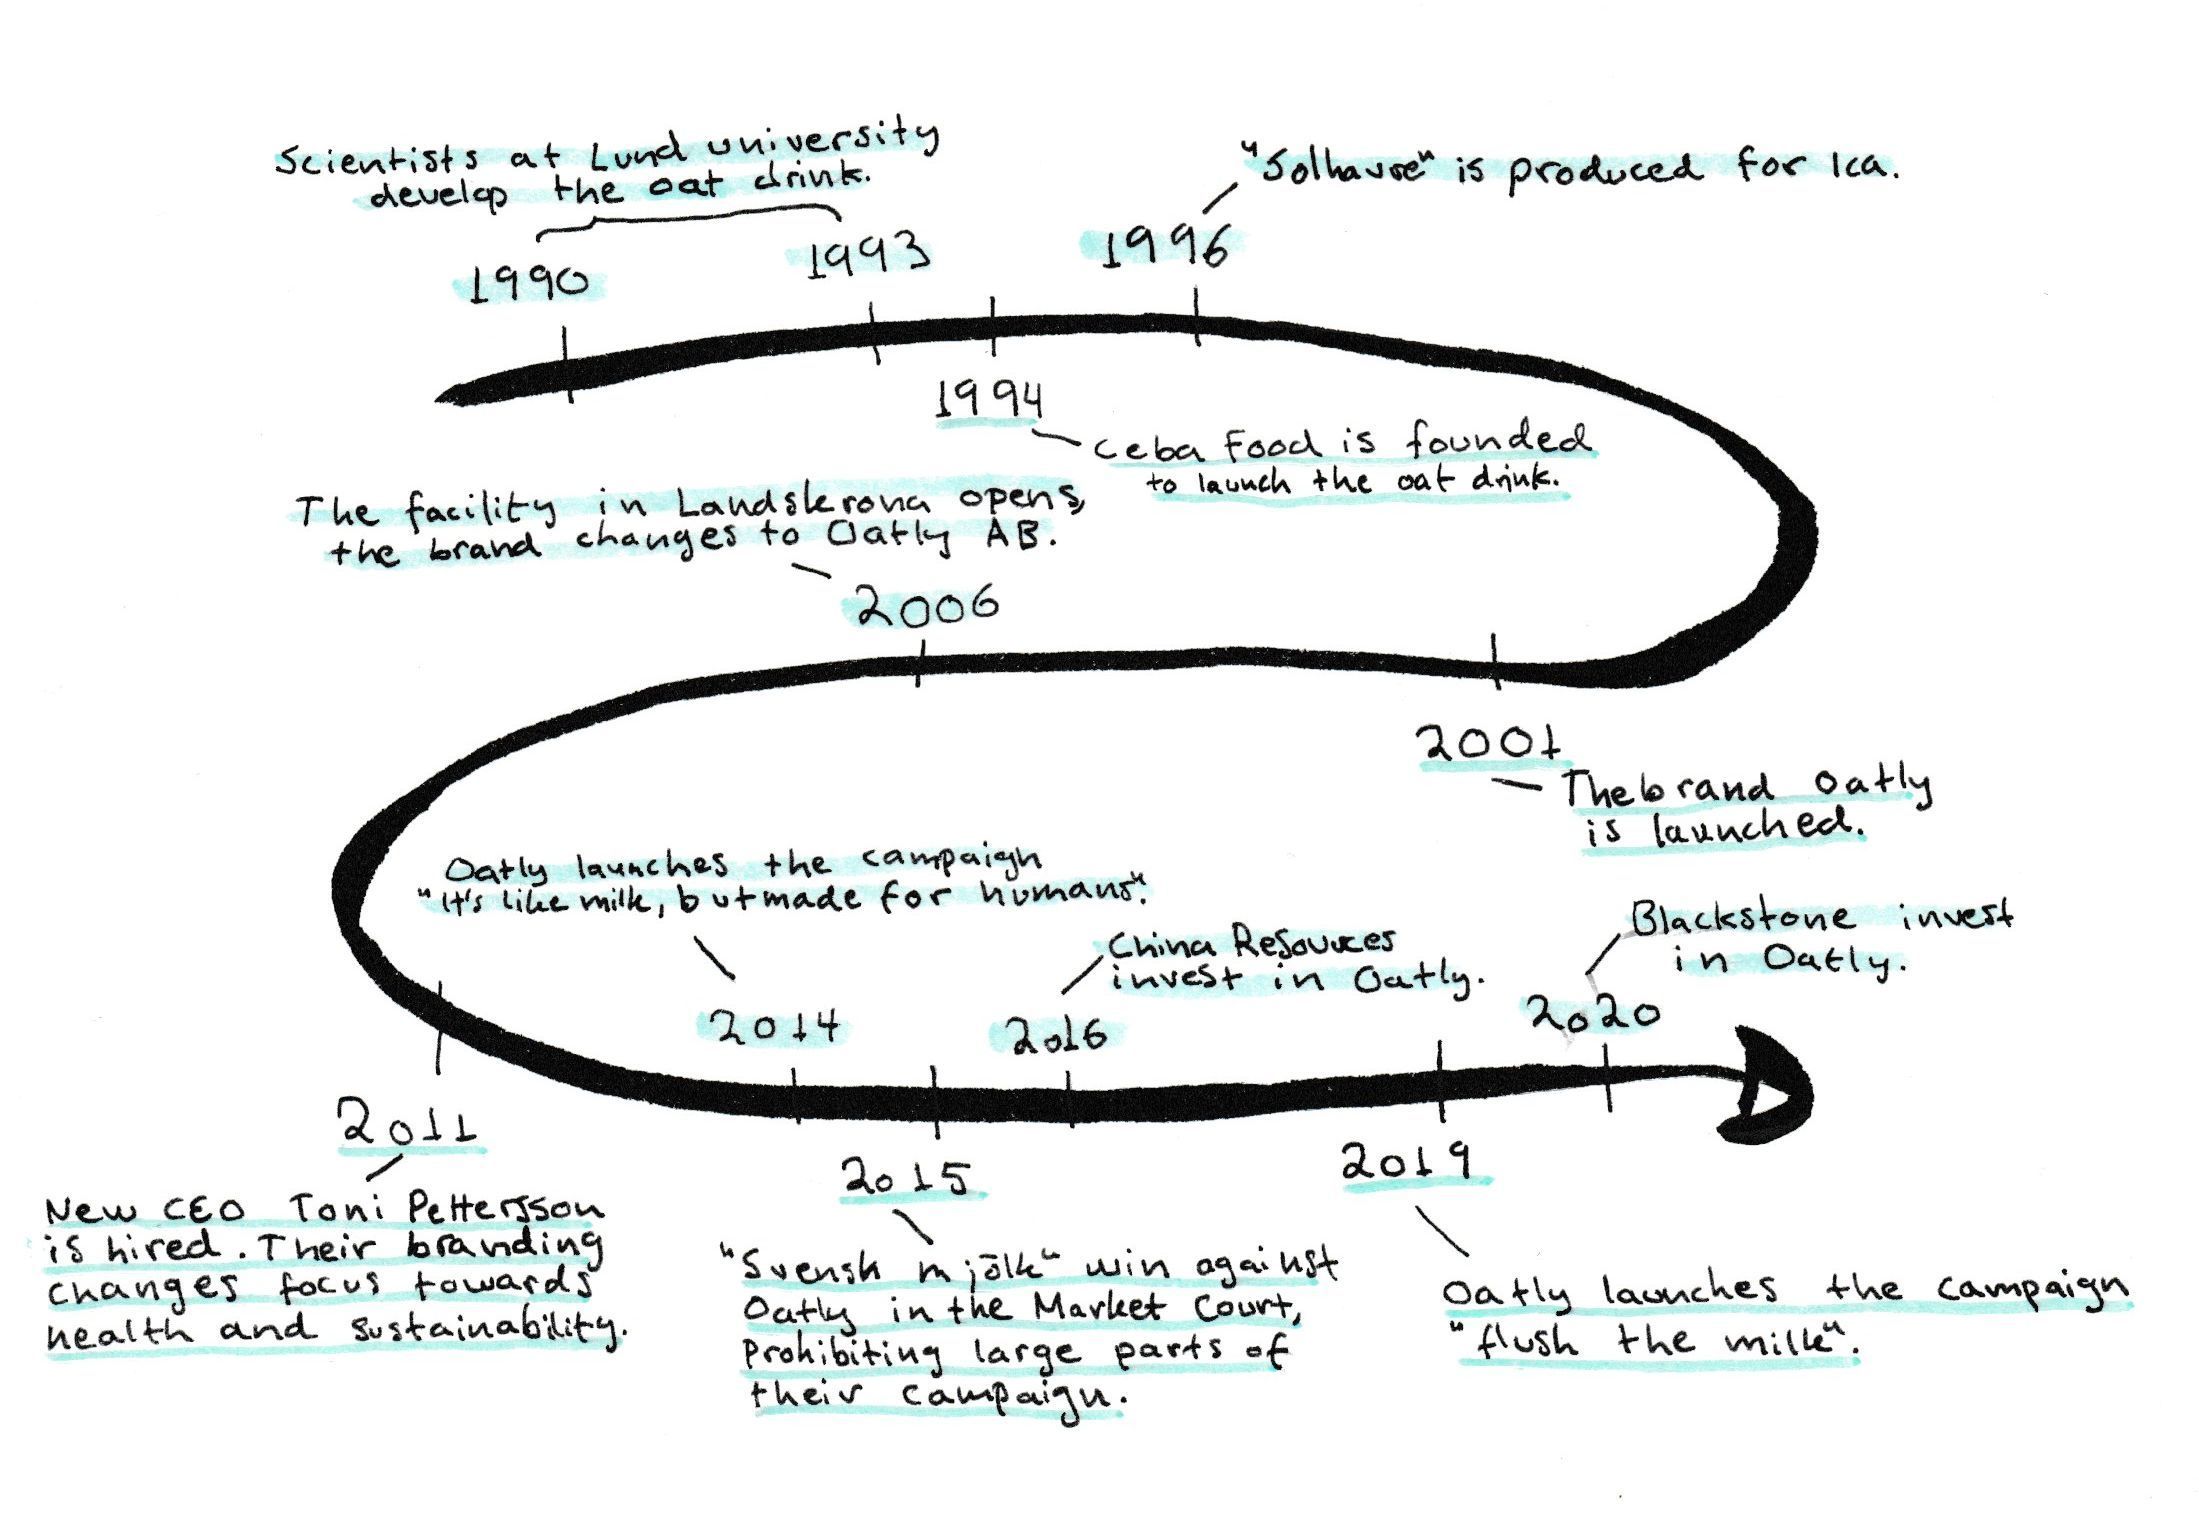 Scientists at Lund university
develop the oat drink.
1990
1993
1996
"Solhavre" is produced for Ica.
1994
Ceba Food is founded
to launch the oat drink.
The facility in Landskrona opens,
the brand changes to Oatly AB.
2006
2001
The brand Oatly
is launched.
Oatly launches the campaign
"It's like milk, but made for humans".
2014
China Resources
invest in Oatly.
2016
Blackstone invest
in Oatly.
2020
2011
New CEO Toni Pettersson
is hired. Their branding
changes focus towards
health and sustainability.
2015
"Svensk mjölk" win against
Oatly in the Market Court,
Prohibiting large parts of
their campaign.
2019
Oatly launches the campaign
"flush the milk".